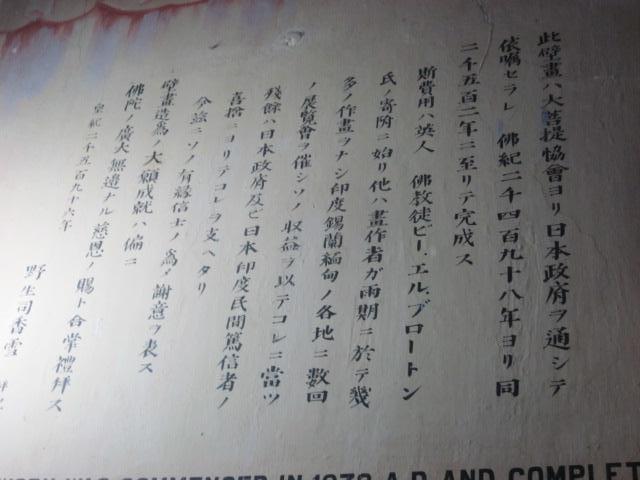 此壁畫ハ大菩提協會ヨリ日本政府ヲ通シテ
依嘱セラレ 佛紀二千四百九十八年ヨリ同
二千五百二年ニ至リテ完成ス
斯費用ハ英人 佛教徒ビー、エル、ブロートン
氏ノ寄附ニ始リ他ハ畫作者ガ雨期ニ於テ幾
多ノ作畫ヲナシ印度錫蘭緬甸ノ各地ニ数回
ノ展覧會ヲ催シソノ収益ヲ以テコレニ當ツ
残餘ハ日本政府及ビ日本印度民間篤信者ノ
喜捨ニヨリテコレヲ支ヘタリ
今茲ニソノ有縁信士ノ為メ謝意ヲ表ス
壁畫造為ノ大願成就ハ偏ニ
佛陀ノ廣大無邉ナル慈恩ノ賜ト合掌禮拜ス
皇紀二千五百九十六年
野生司香雪
WAS COMMENCED IN AND COMPLET